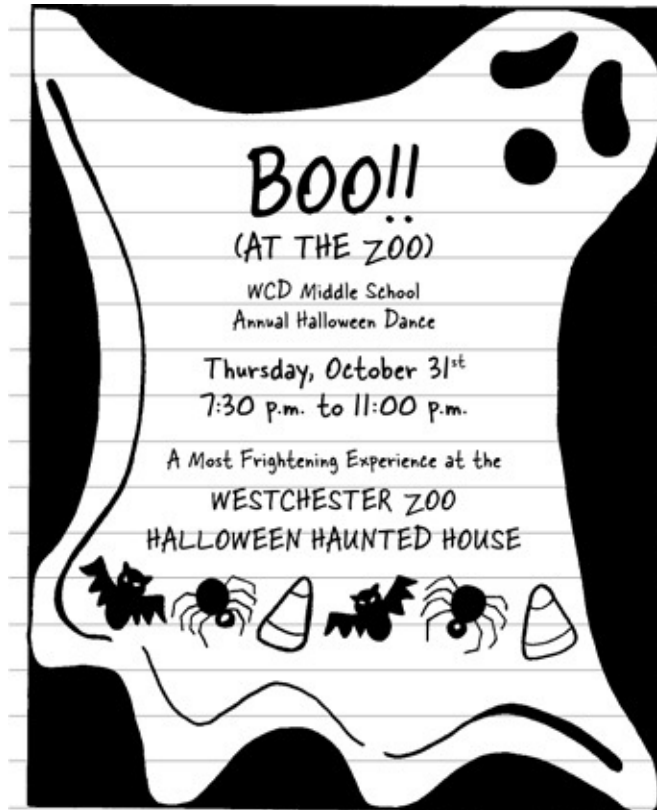 BOO!!
(AT THE ZOO)
WCD Middle School
Annual Halloween Dance
Thursday, October 31st
7:30 p.m. to 11:00 p.m.
A Most Frightening Experience at the
WESTCHESTER ZOO
HALLOWEEN HAUNTED HOUSE